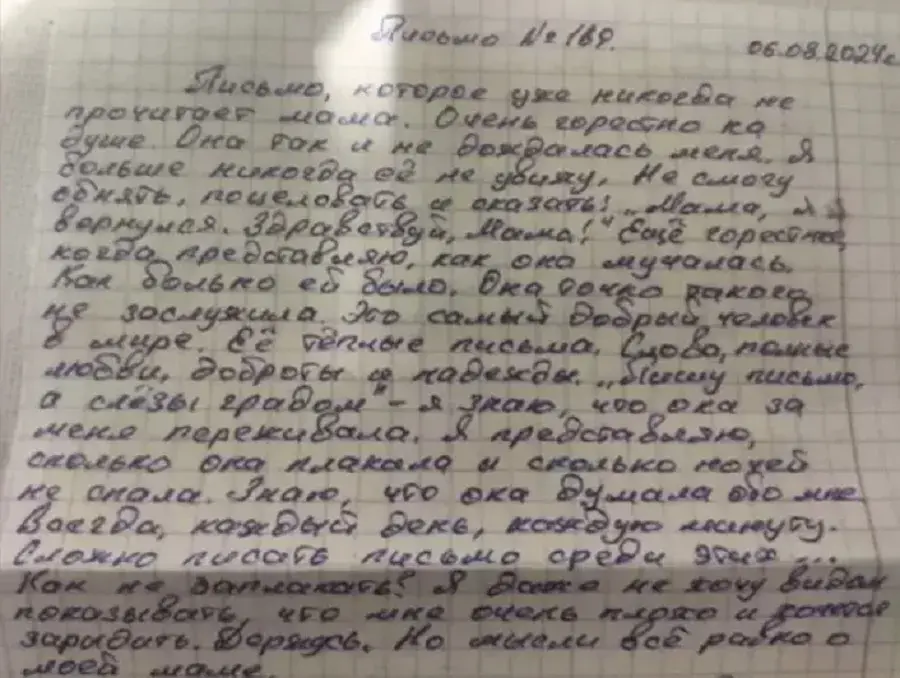 Письмо № 189.
06.08.2024г
Письмо, которое уже никогда не
прочитает мама. Очень горестно на
душе. Она так и не дождалась меня. Я
больше никогда её не увижу. Не смогу
обнять, поцеловать и сказать: „Мама, я
вернулся. Здравствуй, Мама!" Ещё горестно,
когда представляю, как она мучалась.
Как больно ей было. Она точно такого
не заслужила. Это самый добрый человек
в мире. Её тёплые письма. Слова, полные
любви, доброты и надежды. „Пишу письмо,
а слёзы градом" – я знаю, что она за
меня переживала. Я представляю,
сколько она плакала и сколько ночей
не спала. Знаю, что она думала обо мне
всегда, каждый день, каждую минуту.
Сложно писать письмо среди этих ...
Как не заплакать! Я даже не хочу видом
показывать, что мне очень плохо и хочется
зарыдать. Держусь. Но мысли всё равно о
моей маме.